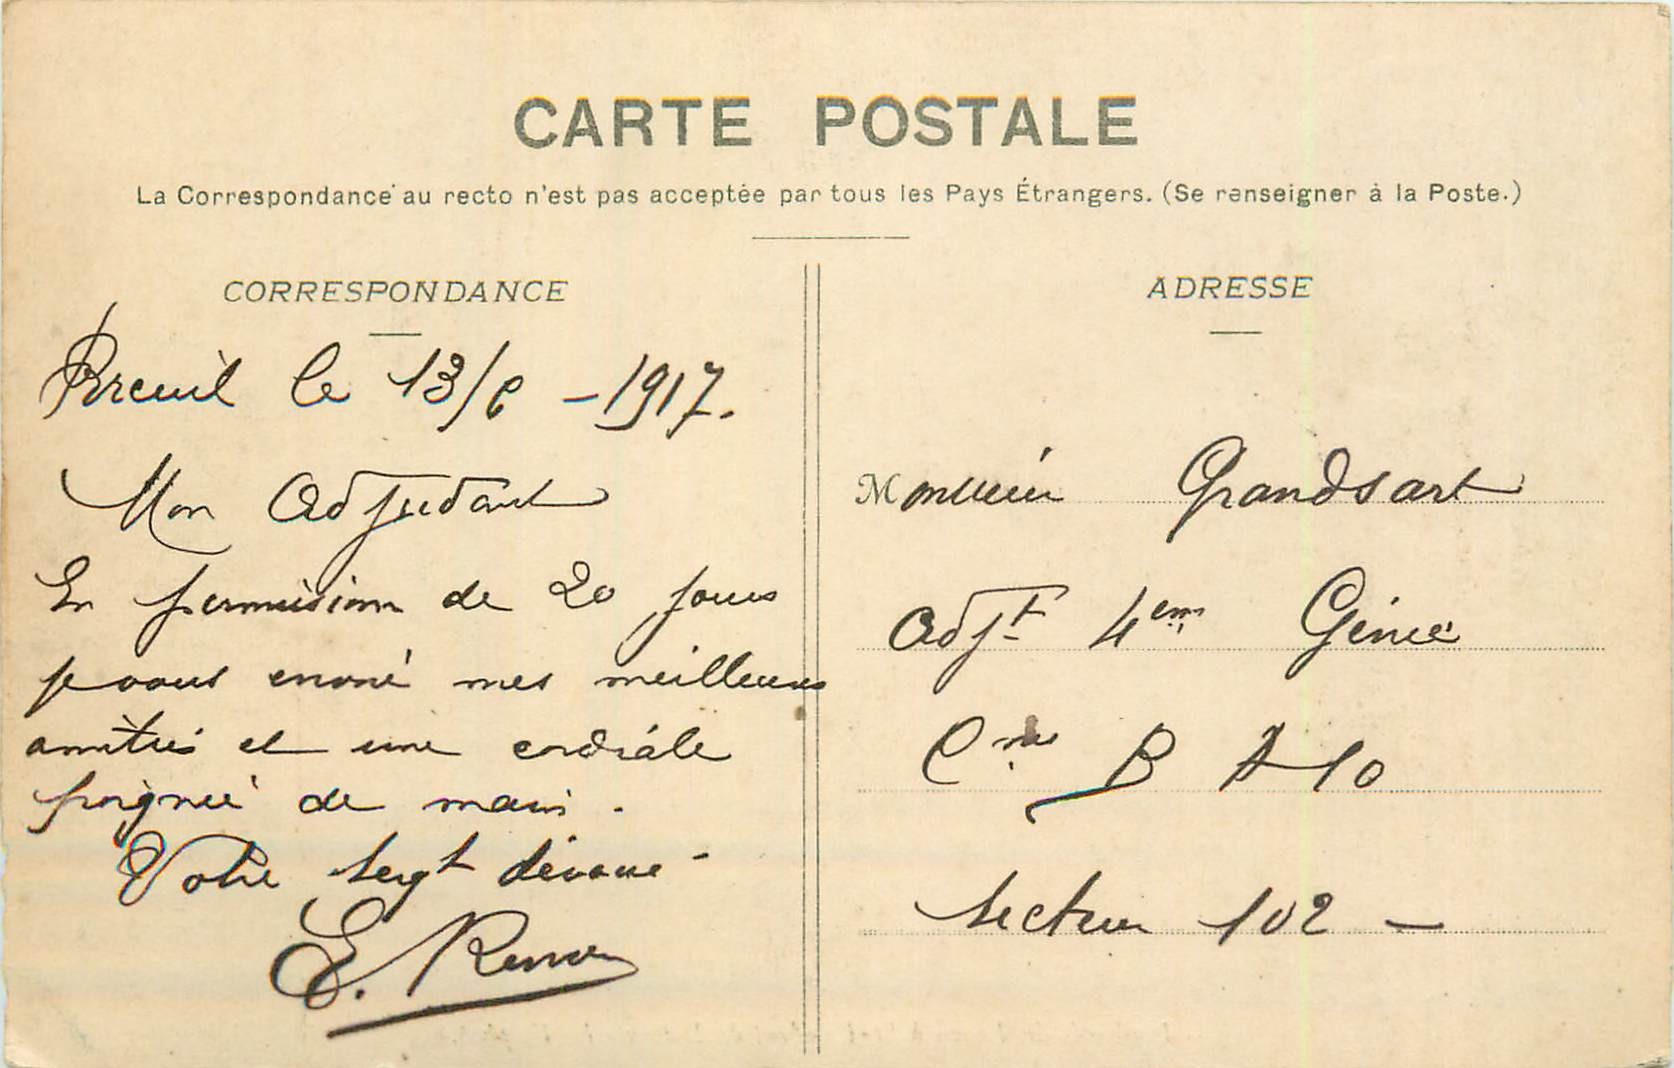 CARTE POSTALE
La Correspondance au recto n'est pas acceptée par tous les Pays Étrangers. (Se renseigner à la Poste.)
CORRESPONDANCE
Breuil le 13/6 - 1917.
Mon Adjudant
En permission de 20 jours
je vous envoie mes meilleures
amitiés et une cordiale
poignée de main.
Votre Sergt dévoué -
E.
ADRESSE
Monsieur Grandsart
Adjt 4em Génie
Cnie B A 10
Secteur 102 -